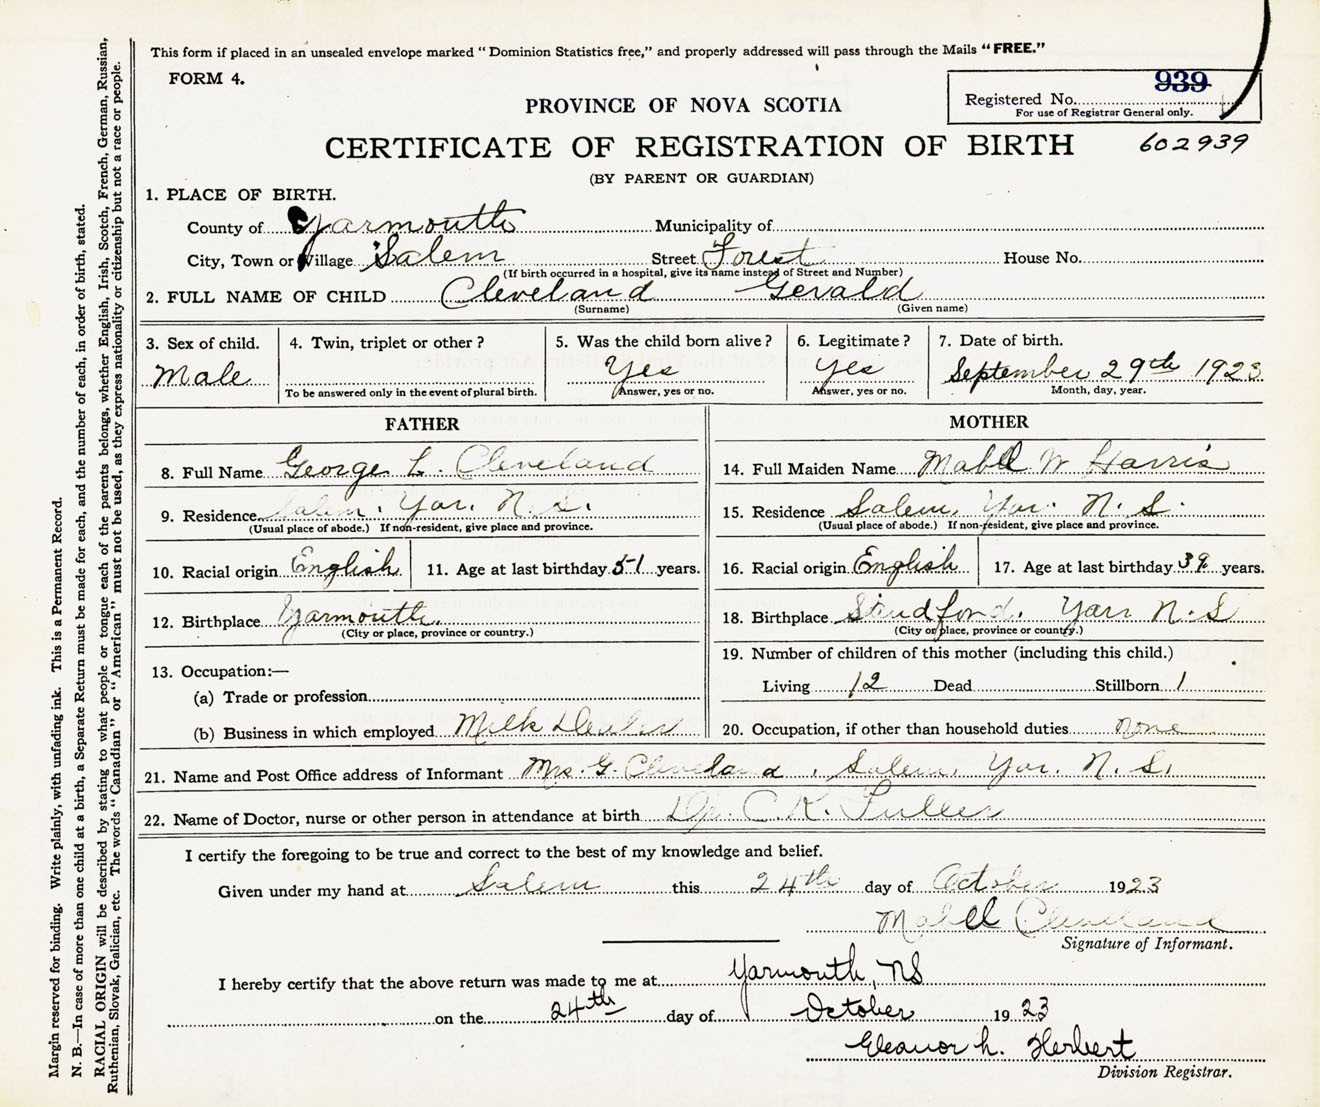 This form if placed in an unsealed envelope marked "Dominion Statistics free," and properly addressed will pass through the Mails "FREE."
FORM 4.
939
Registered No.
For use of Registrar General only.
PROVINCE OF NOVA SCOTIA
CERTIFICATE OF REGISTRATION OF BIRTH 602939
(BY PARENT OR GUARDIAN)
1. PLACE OF BIRTH.
County of Yarmouth Municipality of
City, Town or Village Salem Street Forest House No.
(If birth occurred in a hospital, give its name instead of Street and Number)
2. FULL NAME OF CHILD Cleveland Gerald
(Surname) (Given name)
3. Sex of child. 4. Twin, triplet or other? 5. Was the child born alive? 6. Legitimate? 7. Date of birth.
Male Yes Yes September 29th 1923
To be answered only in the event of plural birth. Answer, yes or no. Answer, yes or no. Month, day, year.
FATHER MOTHER
8. Full Name George L. Cleveland 14. Full Maiden Name Mabel W Harris
9. Residence Salem, Yar. N. S. 15. Residence Salem, Yar. N. S.
(Usual place of abode.) If non-resident, give place and province. (Usual place of abode.) If non-resident, give place and province.
10. Racial origin English 11. Age at last birthday 51 years. 16. Racial origin English 17. Age at last birthday 39 years.
12. Birthplace Yarmouth. 18. Birthplace Yarr N. S
(City or place, province or country.) (City or place, province or country.)
13. Occupation:— 19. Number of children of this mother (including this child.)
(a) Trade or profession Living 12 Dead Stillborn 1
(b) Business in which employed Milk Dealer 20. Occupation, if other than household duties none
21. Name and Post Office address of Informant Mrs. G. Cleveland, Salem, Yar. N. S.
22. Name of Doctor, nurse or other person in attendance at birth Dr. C. K. Fuller
I certify the foregoing to be true and correct to the best of my knowledge and belief.
Given under my hand at Salem this 24th day of October 1923
Mabel Cleveland
Signature of Informant.
I hereby certify that the above return was made to me at Yarmouth, NS
on the 24th day of October 1923
Eleanor h. Herbert
Division Registrar.
Margin reserved for binding. Write plainly, with unfading ink. This is a Permanent Record.
N. B.—In case of more than one child at a birth, a Separate Return must be made for each, and the number of each, in order of birth, stated.
RACIAL ORIGIN will be described by stating to what people or tongue each of the parents belongs, whether English, Irish, Scotch, French, German, Russian,
Ruthenian, Slovak, Galician, etc. The words "Canadian" or "American" must not be used, as they express nationality or citizenship but not a race or people.